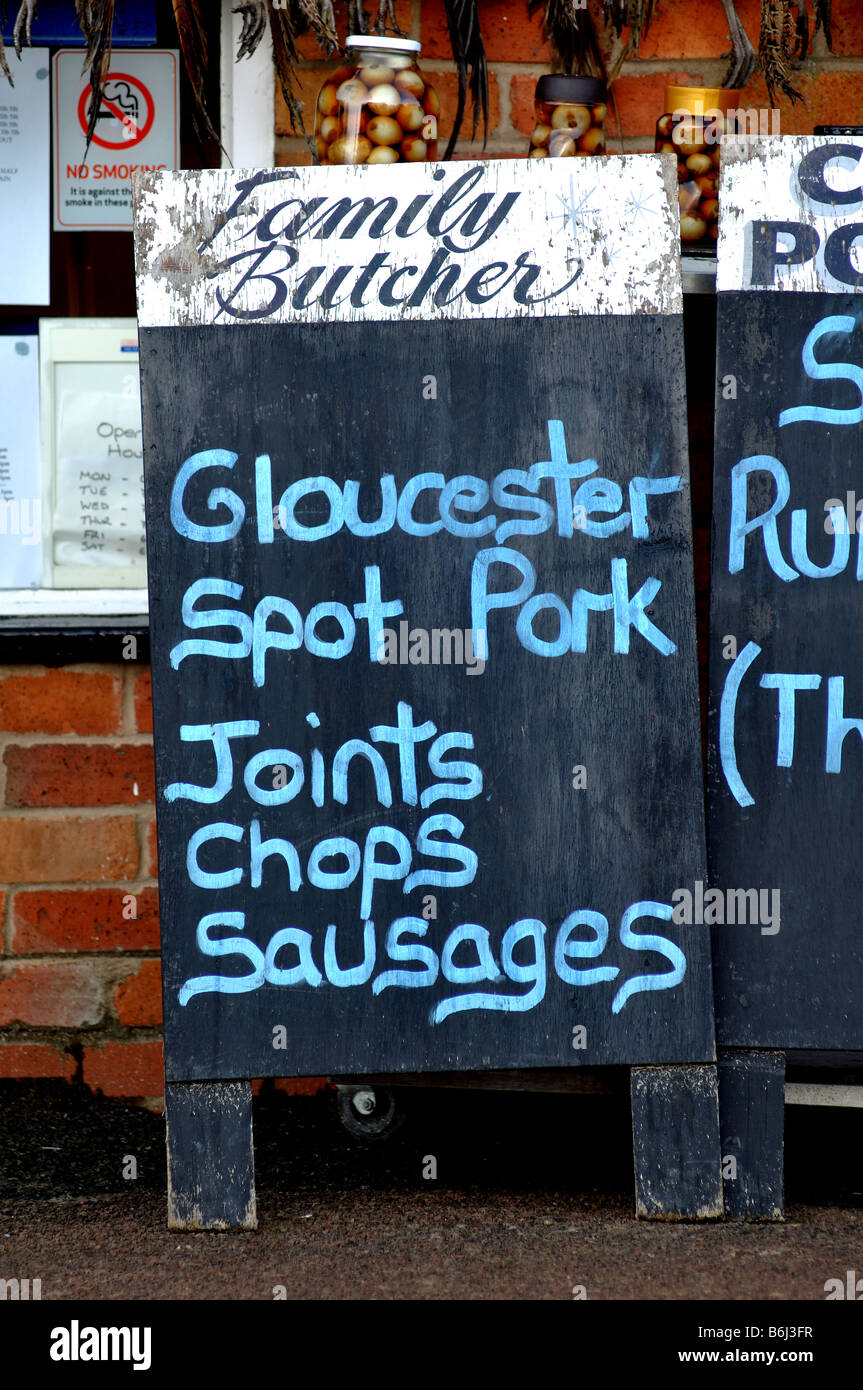 NO SMOKING
It is against the
smoke in these
Open
Hou
MON
TUE
WED
THUR
FRI
SAT
Family
Butcher
Gloucester
Spot Pork
Joints
Chops
Sausages
C
PO
S
Ru
(Th
alamy
Image ID: B6J3FR
www.alamy.com